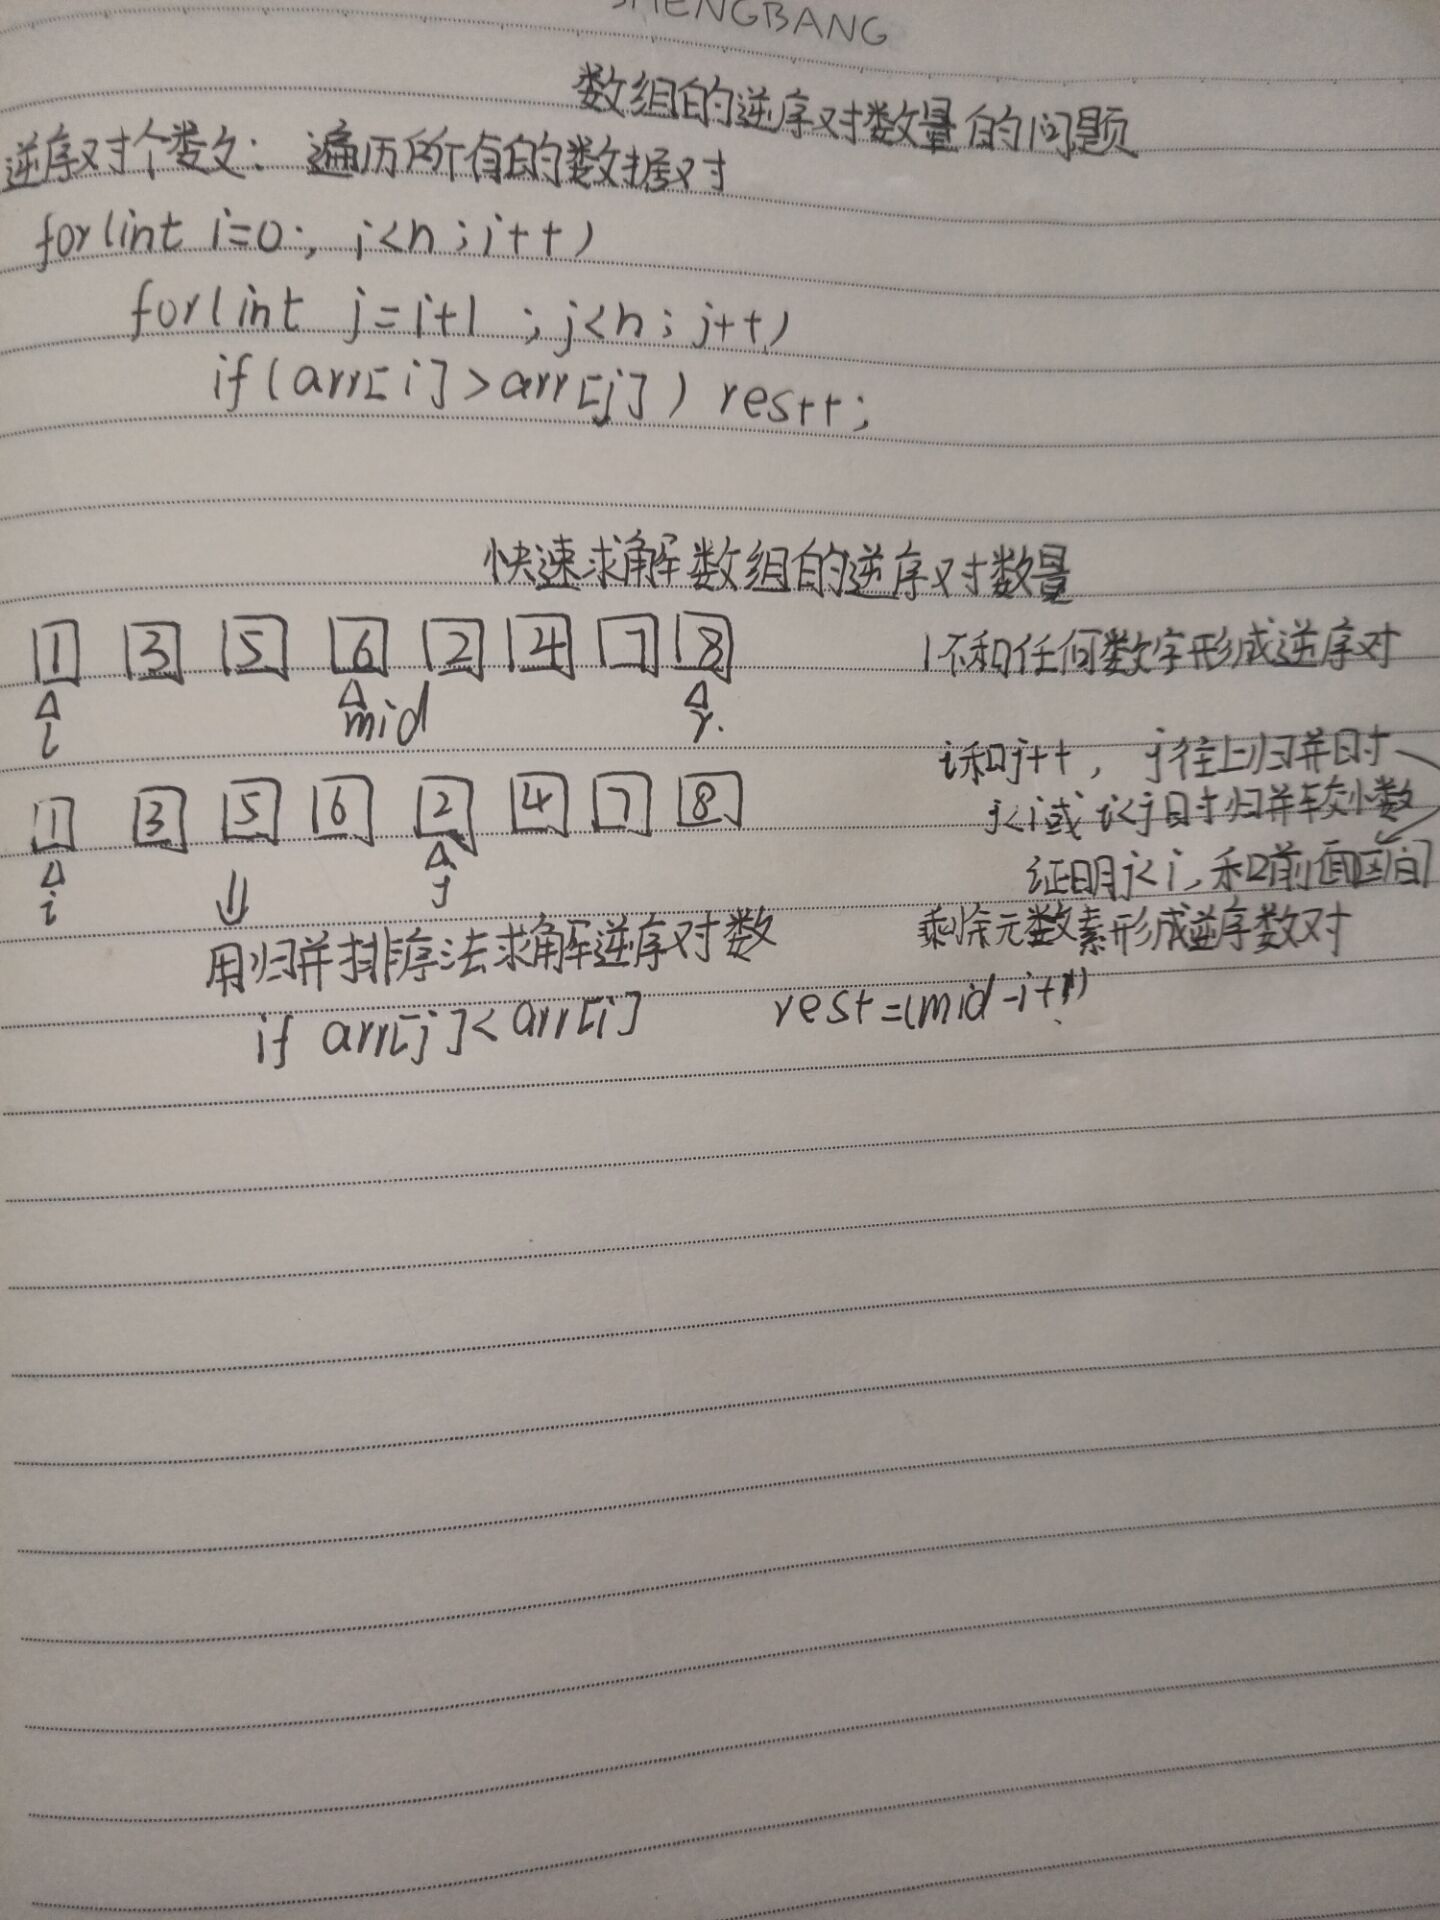 SHENGBANG
数组的逆序对数量的问题
逆序对个数: 遍历所有的数据对
for(int i=0; i<n; i++)
for(int j=i+1; j<n; j++)
if(arr[i]>arr[j]) res++;
快速求解数组的逆序对数量
1 3 5 6 2 4 7 8
1不和任何数字形成逆序对
l mid r.
i和j++, j往上归并时
1 3 5 6 2 4 7 8
j<i或i<j时归并较小数
i j
证明j<i,和2前面区间
用归并排序法求解逆序对数
剩余元数素形成逆序数对
if arr[j]<arr[i] res+=(mid-i+1)